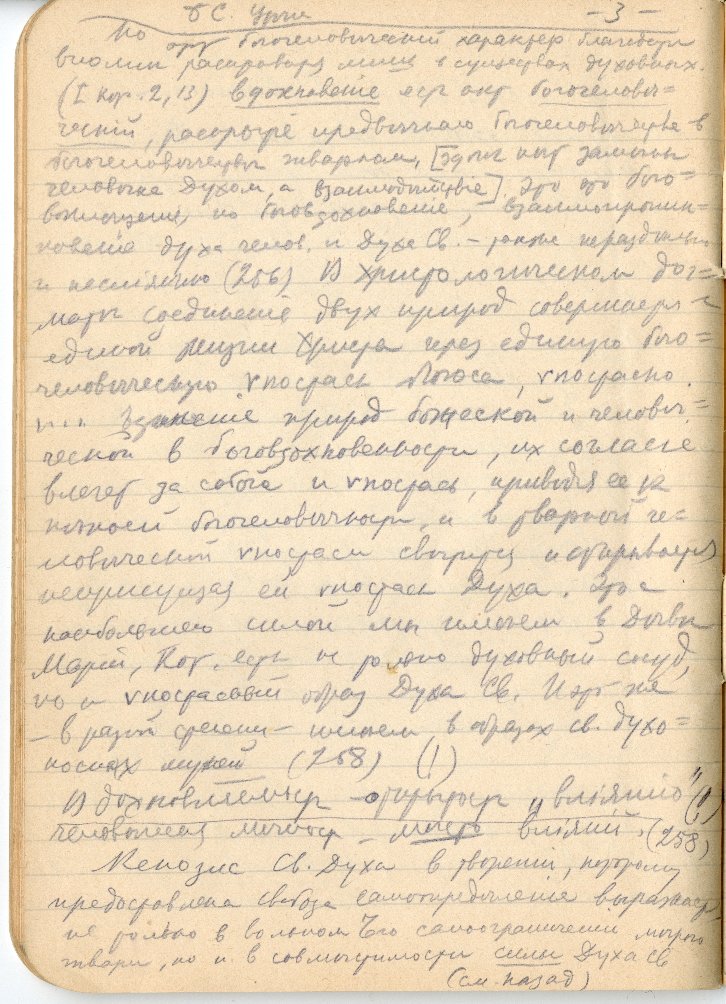 О С. Утеш. – 3 –
Но этот богочеловеческий характер благодати
вполне раскрывается лишь в существах духовных.
(I Кор. 2, 13) Вдохновение есть акт богочеловѣ=
ческій, раскрытіе предвѣчнаго богочеловѣчества в
богочеловѣчествѣ тварном, [здѣсь нѣт замѣны
человѣка Духом, а взаимодѣйствіе]. Это не бого=
воплощеніе, но боговдохновеніе, взаимопроник=
новеніе духа челов. и Духа Св. – также нераздѣльно
и несліянно (256) В Христологическом дог=
матѣ соединеніе двух природ совершается в
единой жизни Христа через единую бого=
человѣческую ѵпостась Логоса, ѵпостасно.
природ божеской и человѣ=
ческой в боговдохновенности, их согласіе
влечет за собой и ѵпостась, приводя ее к
богочеловѣчности, и в тварной че=
ловѣческой ѵпостаси свѣтится и открывается
неприсущая ей ѵпостась Духа. Это с
наибольшею силой мы имѣем в Дѣвѣ
Маріи, Кот. есть не только духовный сосуд,
но и ѵпостасный образ Духа Св. И это же
– в разной степени – имѣем в образах св. духо=
носных мужей (258) (!)
Вдохновляемый открытыя „вліянію" (!)
человѣческая личность – мѣсто вліяній. (258)
Кенозис Св. Духа в твореніи, которому
предоставлена свобода самоопредѣленія выражается
не только в вольном Его самоограниченіи мѣрою
твари, но и в совмѣстимости силы Духа Св
(см. назад)